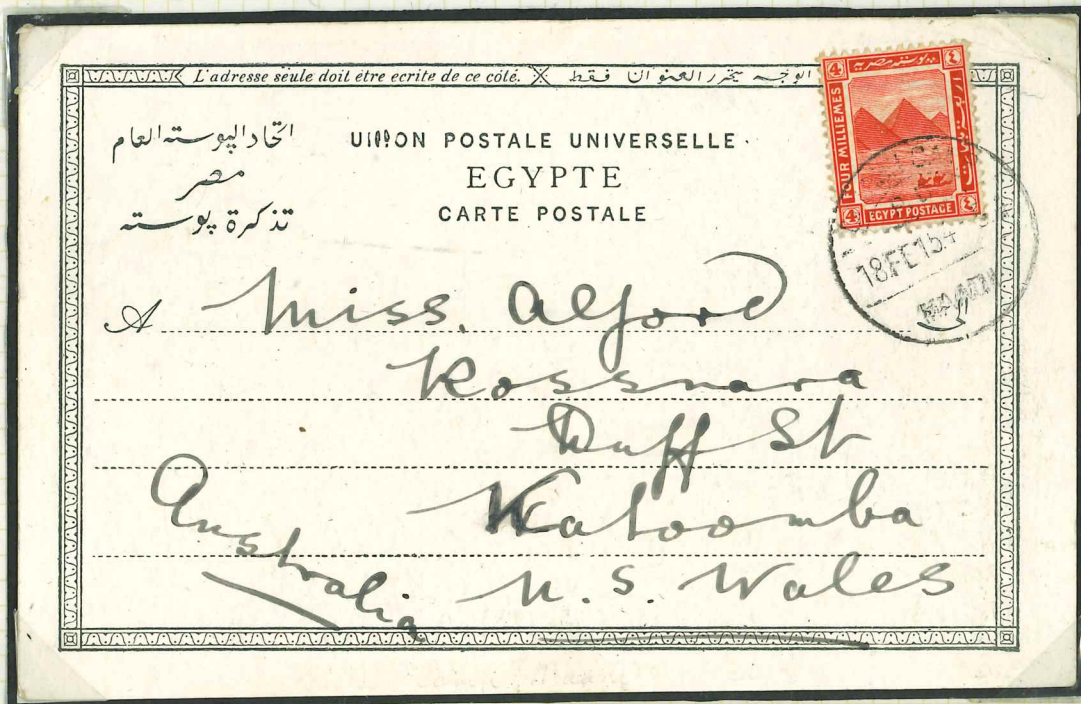 L'adresse seule doit être ecrite de ce côté. الوجه يحرر العنوان فقط
اتحاد البوسته العام
UNION POSTALE UNIVERSELLE
مصر
EGYPTE
تذكرة بوسته
CARTE POSTALE
4 4
FOUR MILLIEMES
EGYPT POSTAGE
4 ٤
18 FE 15 4
MAADI
A Miss. Alford
Rossnara
Duff St
Katoomba
Australia
N. S. Wales